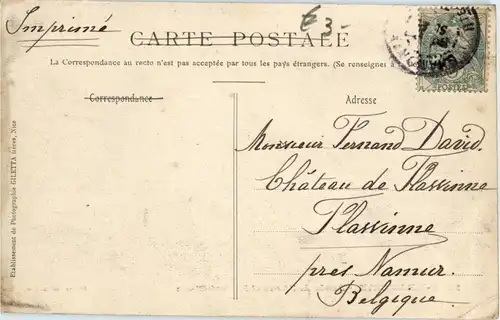 Imprimé
£ 3-
CARTE POSTALE
La Correspondance au recto n'est pas acceptée par tous les pays étrangers. (Se renseigner
Correspondance
Adresse
Monsieur Fernand David.
Château de Flassinne
Flassinne
près Namur.
Belgique.
Etablissement de Photographie GILETTA frères, Nice
POSTES